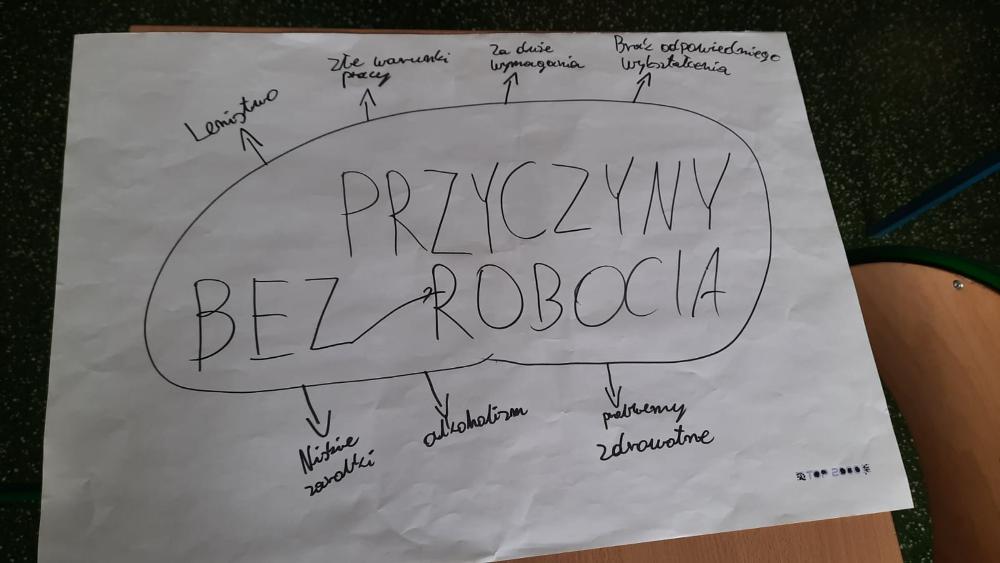 Lenistwo
Złe warunki
pracy
Za duże
wymagania
Brak odpowiedniego
wykształcenia
PRZYCZYNY
BEZROBOCIA
Niskie
zarobki
alkoholizm
problemy
zdrowotne
TOP 2000